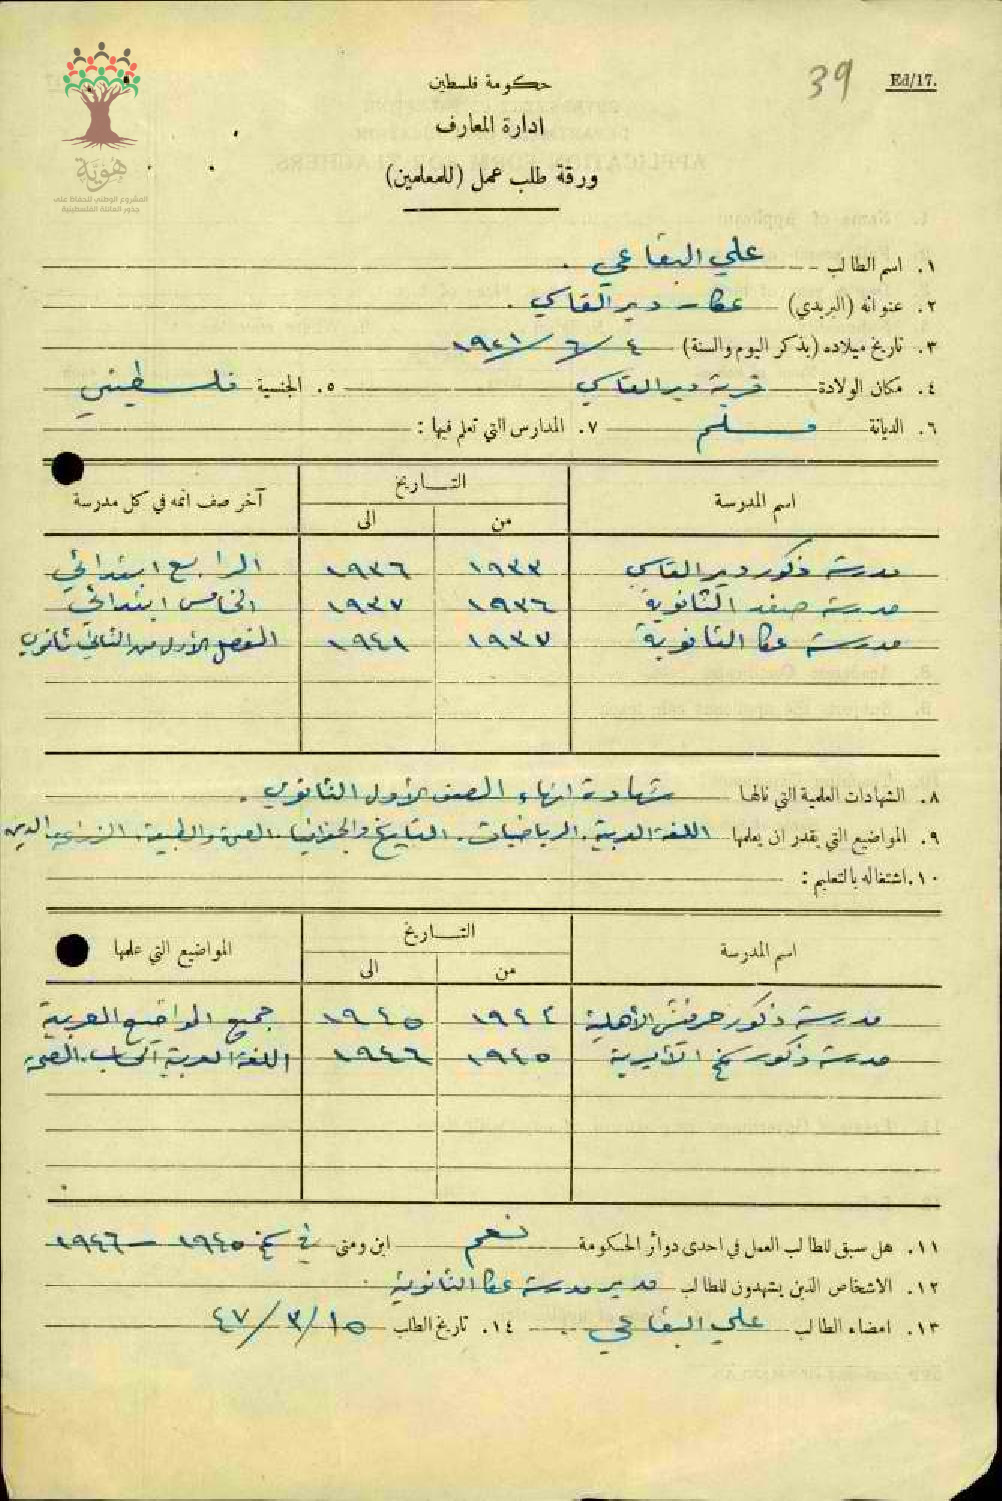 Ed/17.
39
حكومة فلسطين
ادارة المعارف
ورقة طلب عمل (للمعلمين)
هوية
المشروع الوطني للحفاظ على
جذور العائلة الفلسطينية
١. اسم الطالب علي البقاعي
٢. عنوانه (البريدي) عكا - دير القاسي
٣. تاريخ ميلاده (يذكر اليوم والسنة) ٤/٦/١٩٢١
٤. مكان الولادة قرية دير القاسي ٥. الجنسية فلسطيني
٦. الديانة مسلم ٧. المدارس التي تعلم فيها :
اسم المدرسة التاريخ آخر صف اتمه في كل مدرسة
من الى
مدرسة ذكور دير القاسي ١٩٣٣ ١٩٣٦ الرابع ابتدائي
مدرسة صفد الثانوية ١٩٣٦ ١٩٣٧ الخامس ابتدائي
مدرسة عكا الثانوية ١٩٣٧ ١٩٤١ الفصل الأول من الثاني ثانوي
٨. الشهادات العلمية التي نالها شهادة انهاء الصف الأول الثانوي .
٩. المواضيع التي يقدر ان يعلمها اللغة العربية . الرياضيات . التاريخ والجغرافيا . الصحة والطبيعة . الزراعة والدين
١٠. اشتغاله بالتعليم :
اسم المدرسة التاريخ المواضيع التي علمها
من الى
مدرسة ذكور حرفيش الأهلية ١٩٤٤ ١٩٤٥ جميع المواضيع العربية
مدرسة ذكور سخ الأميرية ١٩٤٥ ١٩٤٦ اللغة العربية الحساب . الصحة
١١. هل سبق للطالب العمل في احدى دوائر الحكومة نعم اين ومتى في سخ ١٩٤٥ - ١٩٤٦
١٢. الاشخاص الذين يشهدون للطالب مدير مدرسة عكا الثانوية .
١٣. امضاء الطالب علي البقاعي ١٤. تاريخ الطلب ١٥/٣/٤٧